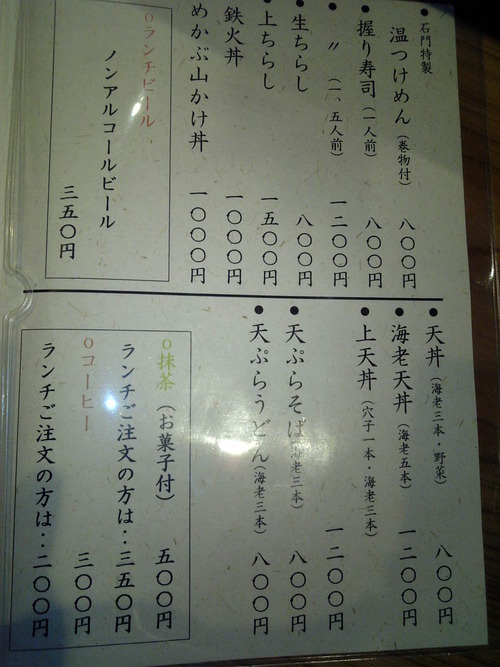 石門特製
●温つけめん（巻物付） 八〇〇円
●握り寿司（一人前） 八〇〇円
●〃（一、五人前） 一二〇〇円
●生ちらし 八〇〇円
●上ちらし 一五〇〇円
鉄火丼 一〇〇〇円
めかぶ山かけ丼 一〇〇〇円
○ランチビール
ノンアルコールビール
三五〇円
●天丼（海老三本・野菜） 八〇〇円
●海老天丼（海老五本） 一二〇〇円
●上天丼（穴子一本・海老三本） 一二〇〇円
●天ぷらそば（海老三本） 八〇〇円
●天ぷらうどん（海老三本） 八〇〇円
○抹茶（お菓子付） 五〇〇円
ランチご注文の方は‥三五〇円
○コーヒー 三〇〇円
ランチご注文の方は‥二〇〇円